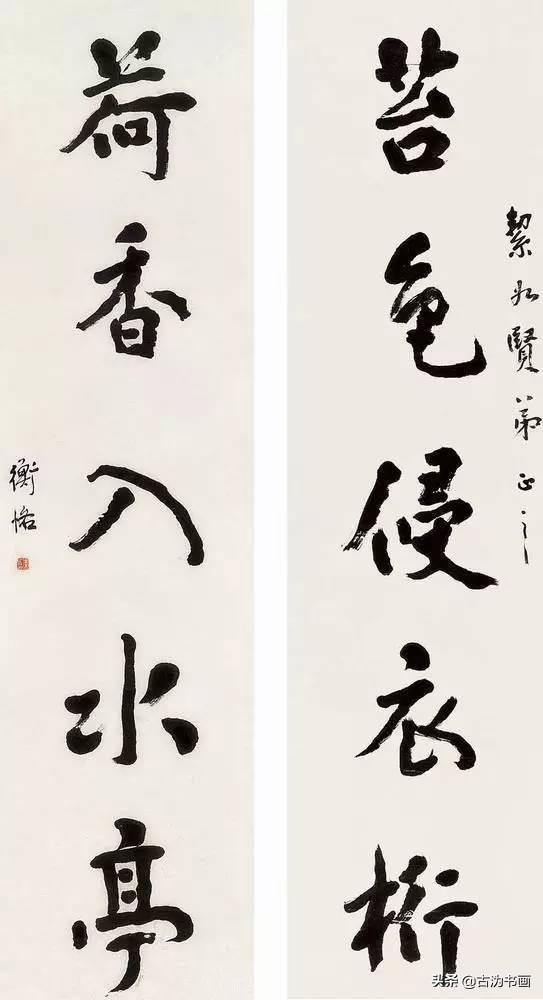 苔色侵衣桁
絜如賢弟正之
荷香入水亭
衡恪
头条@古沩书画